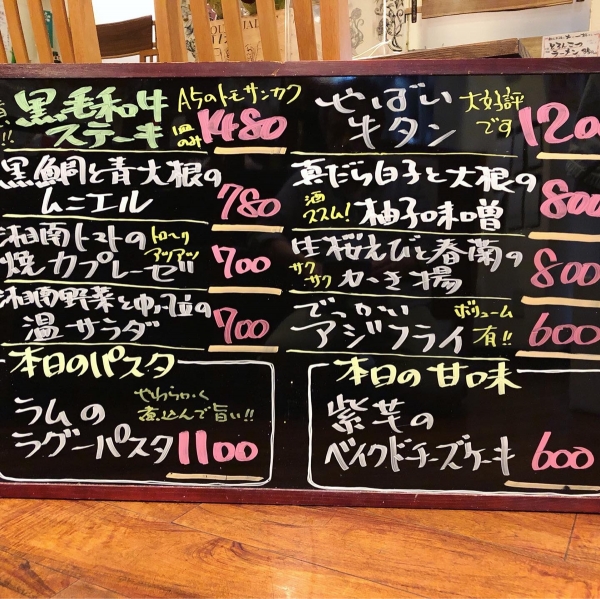 黒毛和牛 A5のトモサンカク
ステーキ 1480
黒鯛と青大根の
ムニエル 780
湘南トマトの トロ〜リ アツアツ
焼カプレーゼ!! 700
湘南野菜と
温サラダ 700
本日のパスタ
ラムの やわらかく
ラグーパスタ 煮込んで旨い!!
1100
やばい 大好評
牛タン です 120
真だら白子と大根の
酒ススム! 柚子味噌 800
生桜えびと春菊の
サクサク かき揚 800
でっかい ボリューム
アジフライ 有!! 600
本日の甘味
紫芋の
ベイクドチーズケーキ 600
とろんこつ
ラーメン